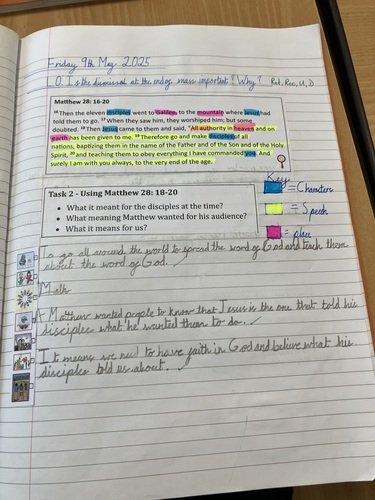 Friday 9th May 2025
L.O. Is the dismissal at the end of mass important? Why? Ret, Rec, U, D
Matthew 28: 16-20
16 Then the eleven disciples went to Galilee, to the mountain where Jesus had
told them to go. 17 When they saw him, they worshiped him; but some
doubted. 18 Then Jesus came to them and said, "All authority in heaven and on
earth has been given to me. 19 Therefore go and make disciples of all
nations, baptizing them in the name of the Father and of the Son and of the Holy
Spirit, 20 and teaching them to obey everything I have commanded you. And
surely I am with you always, to the very end of the age.
Key
= Characters
= Speech
= place
Task 2 - Using Matthew 28: 18-20
• What it meant for the disciples at the time?
• What meaning Matthew wanted for his audience?
• What it means for us?
To go all around the world to spread the word of God and teach them
about the word of God.
Math
A Matthew wanted people to know that Jesus is the one that told his
disciples what he wanted them to do.
It means we need to have faith in God and believe what his
disciples told us about.